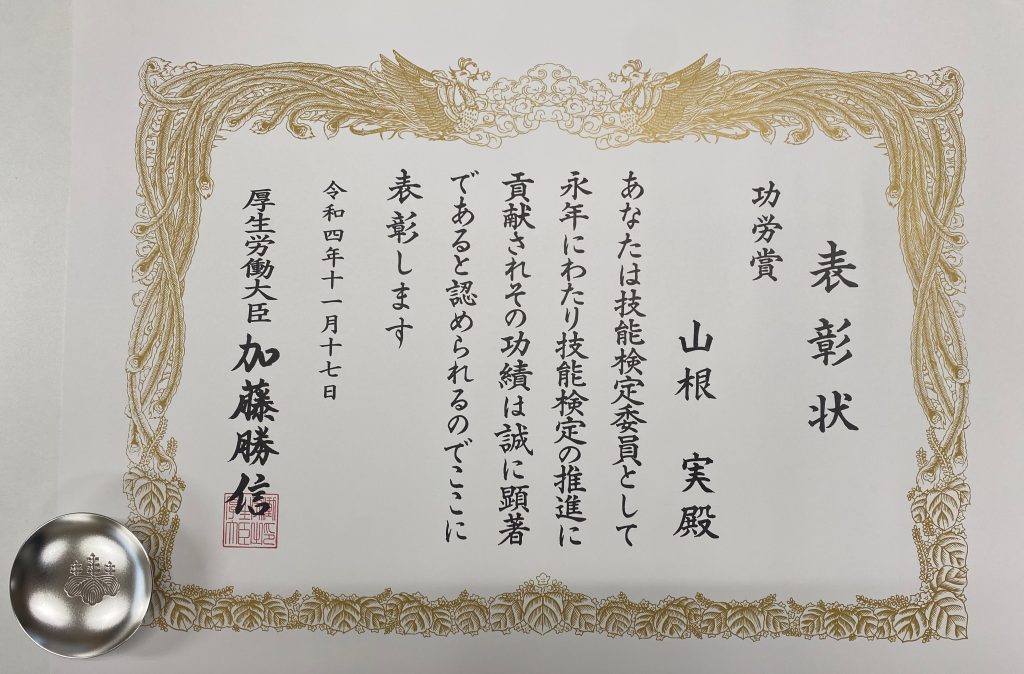 表彰状
功労賞
山根 実殿
あなたは技能検定委員として
永年にわたり技能検定の推進に
貢献されその功績は誠に顕著
であると認められるのでここに
表彰します
令和四年十一月十七日
厚生労働大臣 加藤勝信